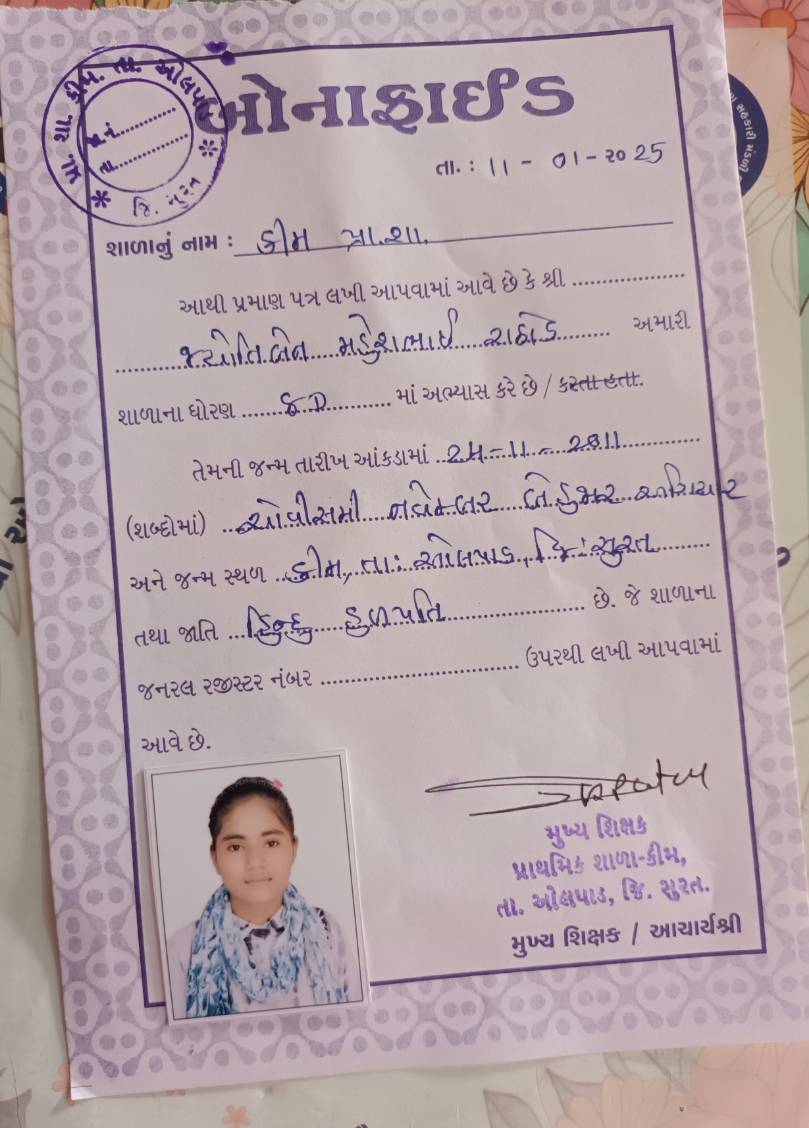 બોનાફાઈડ
પ્રા. શા. કીમ. તા. ઓલપાડ
જા.નં.
તા.
જિ. સુરત
તા. : 11 - 01 - 2025
શાળાનું નામ : કીમ પ્રા.શા.
આથી પ્રમાણ પત્ર લખી આપવામાં આવે છે કે શ્રી
જ્યોતિબેન મહેશભાઈ રાઠોડ અમારી
શાળાના ધોરણ માં અભ્યાસ કરે છે / કરતા હતા.
તેમની જન્મ તારીખ આંકડામાં 24 - 11 - 2011
(શબ્દોમાં) ચોવીસમી નવેમ્બર બે હજાર અગિયાર
અને જન્મ સ્થળ કીમ, તા: ઓલપાડ, જિ: સુરત
તથા જાતિ હિન્દુ હળપતિ છે. જે શાળાના
જનરલ રજીસ્ટર નંબર ઉપરથી લખી આપવામાં
આવે છે.
મુખ્ય શિક્ષક
પ્રાથમિક શાળા-કીમ,
તા. ઓલપાડ, જિ. સુરત.
મુખ્ય શિક્ષક / આચાર્યશ્રી
સહકારી મંડળી